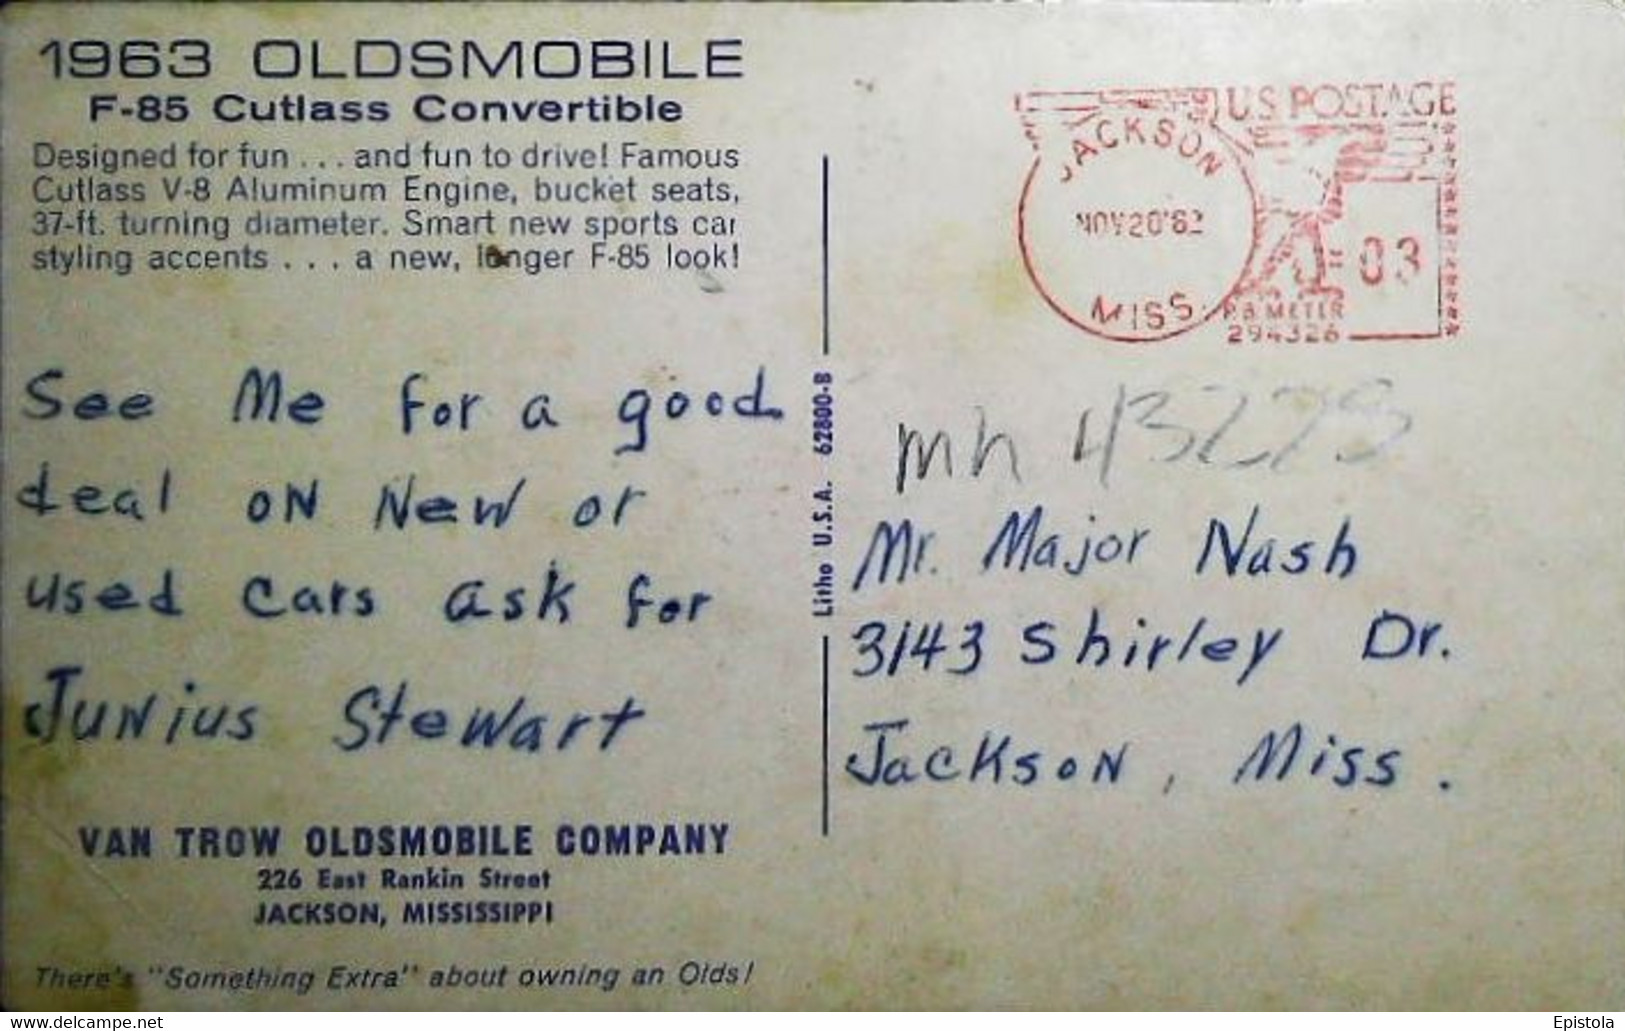 1963 OLDSMOBILE
F-85 Cutlass Convertible
Designed for fun . . . and fun to drive! Famous
Cutlass V-8 Aluminum Engine, bucket seats,
37-ft. turning diameter. Smart new sports car
styling accents . . . a new, longer F-85 look!
See Me for a good
deal oN New or
used cars ask for
JuNius Stewart
VAN TROW OLDSMOBILE COMPANY
226 East Rankin Street
JACKSON, MISSISSIPPI
There's "Something Extra" about owning an Olds!
Litho U.S.A. 62800-B
U.S. POSTAGE
JACKSON
NOV20'62
MISS.
03
P.B. METER
294326
Mr. Major Nash
3143 Shirley Dr.
JacksoN, Miss.
delcampe.net
Epistola